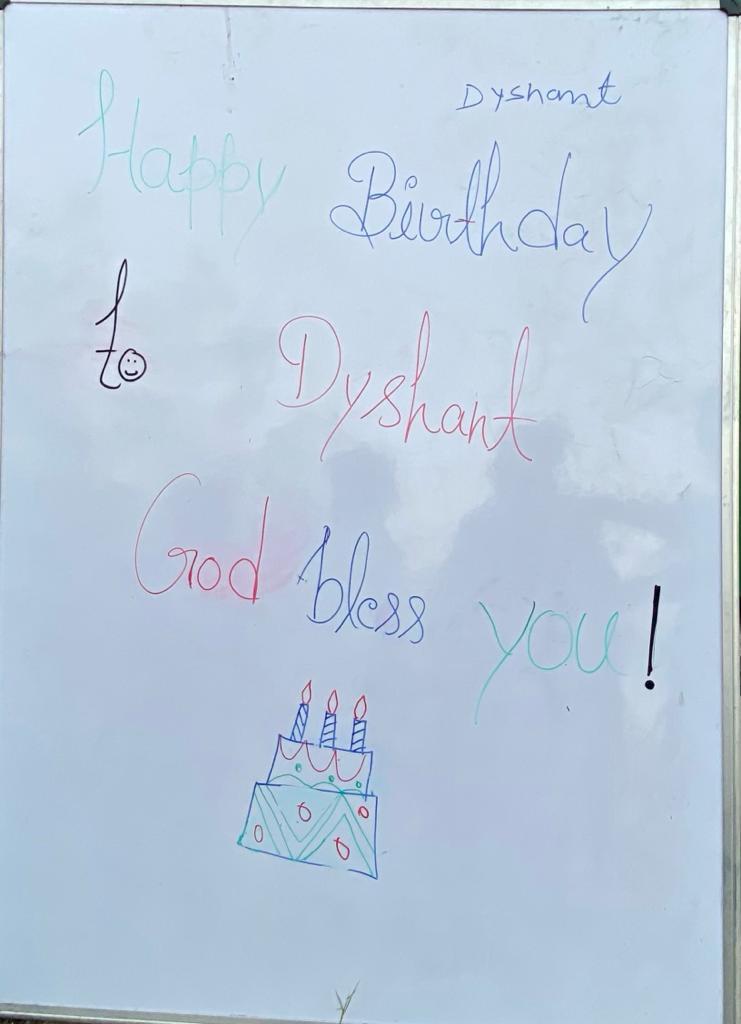 Dyshant
Happy Birthday
to Dyshant
God bless you!